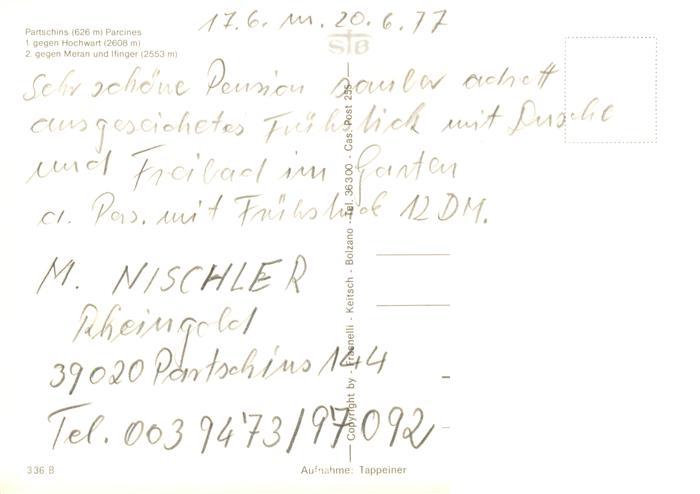 17.6. u. 20.6.77
Partschins (626 m) Parcines
1. gegen Hochwart (2608 m)
2. gegen Meran und Ifinger (2553 m)
STB
Sehr schöne Pension sauber adrett
ausgeseichetes Frühstück mit Dusche
und Freibad im Garten
a. Pers. mit Frühstück 12 DM.
M. NISCHLER
Rheingold
39020 Partschins 144
Tel. 0039473/97092
Copyright by - Frasnelli - Keitsch - Bolzano - Tel. 36300 - Cas. Post 255
336 B
Aufnahme: Tappeiner